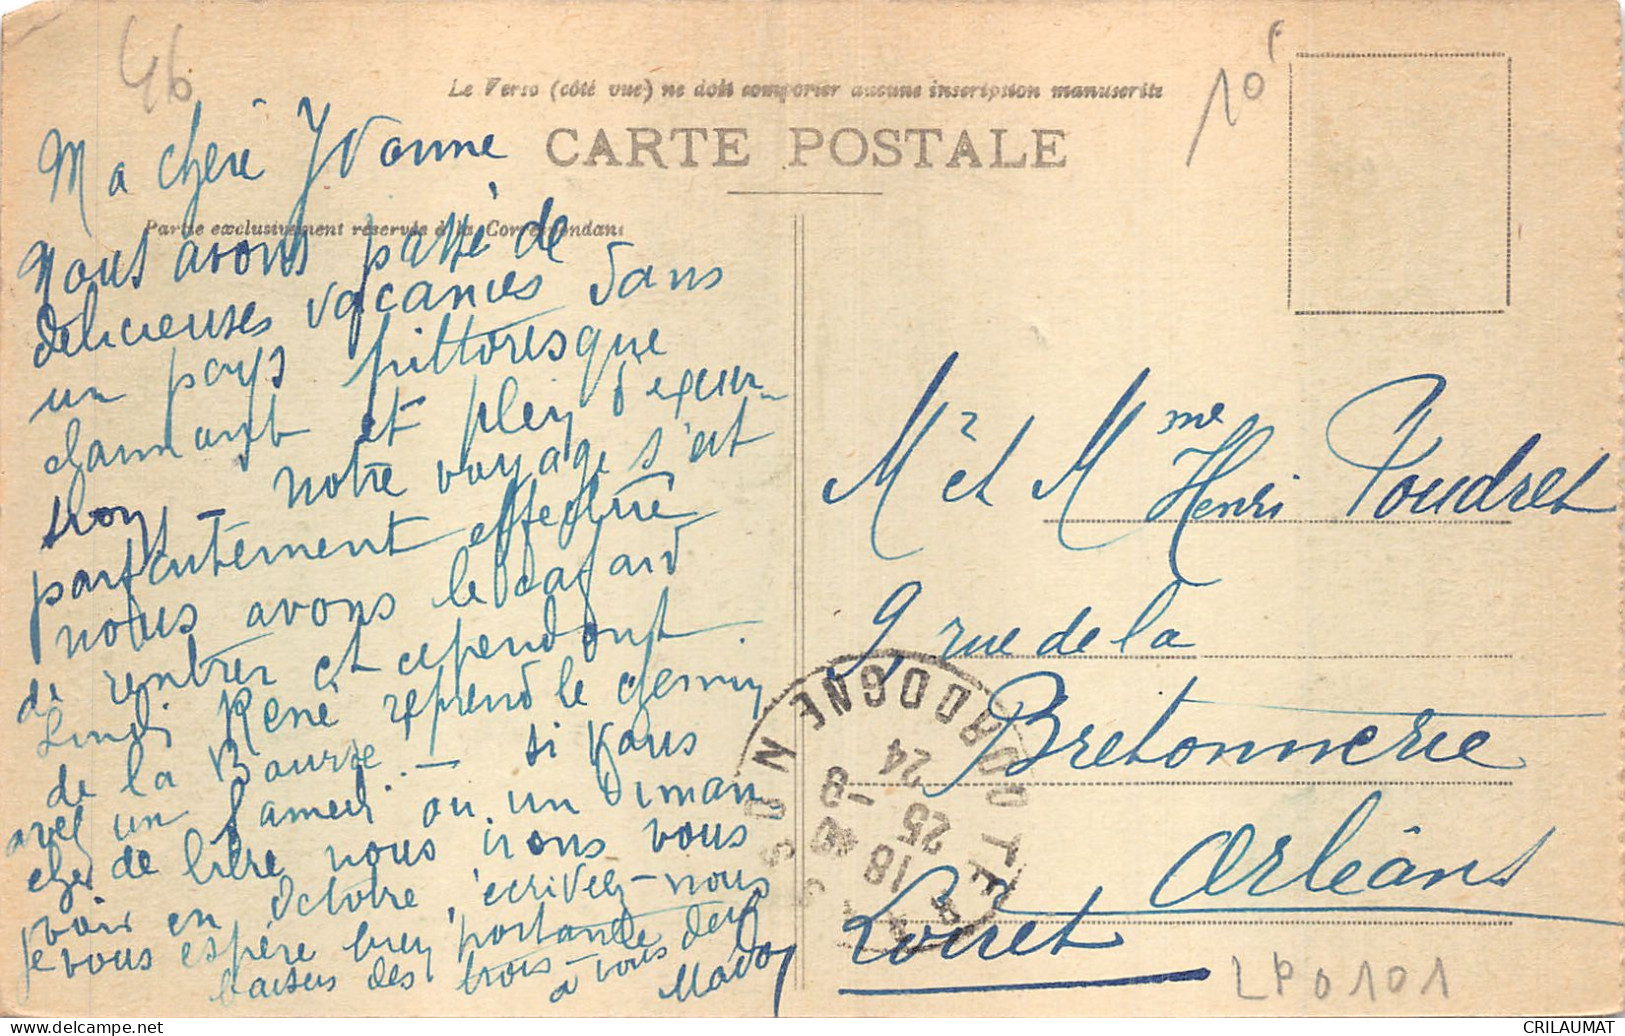 46
10F
Le Verso (côté vue) ne doit comporter aucune inscription manuscrite
CARTE POSTALE
Partie exclusivement réservée à la Correspondance
Ma chère Yvonne
Nous avons passé de
délicieuses vacances dans
un pays pittoresque
charmant et plein d'excur-
sion – notre voyage s'est
parfaitement effectué
nous avons le cafard
de rentrer et cependant
Lundi René reprend le chemin
de la Bourse. – si vous
avez un samedi ou un diman
che de libre nous irons vous
voir en Octobre, écrivez-nous
je vous espère bien portante
baisers des trois – à vous deux
Mr et Mme Henri Poudret
9, rue de la
Bretonnerie
Orléans
Loiret
DORDOGNE
18
25 -8
24
LP0101
CRILAUMAT